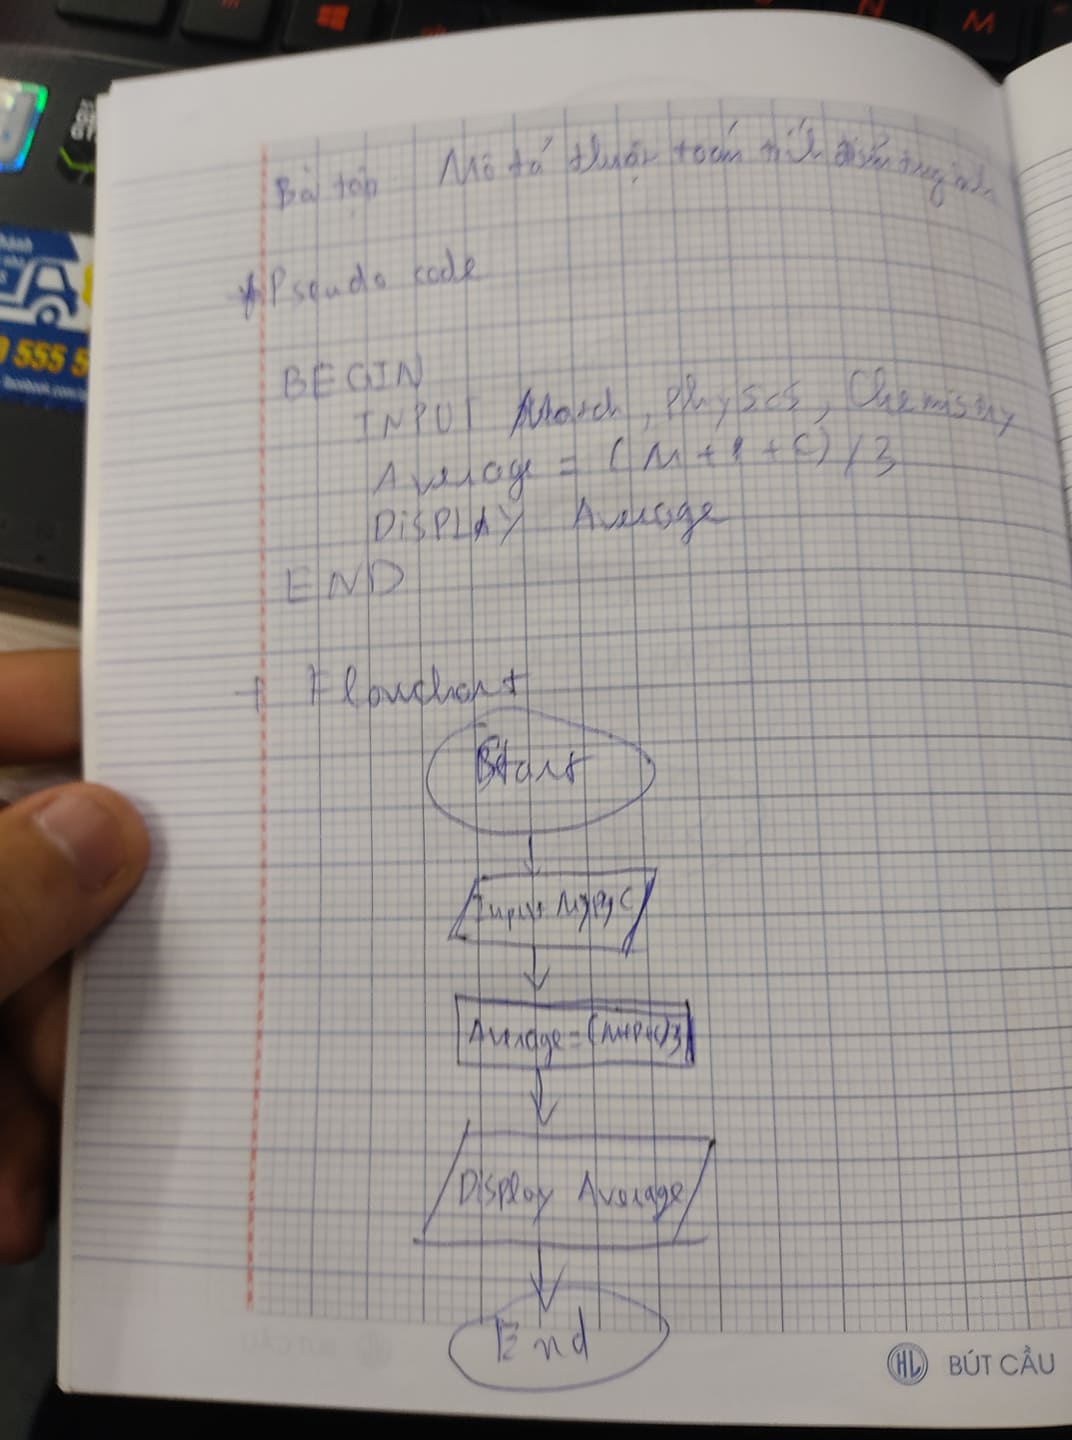 Bài tập Mô tả thuật toán tính điểm trung bình
+ Pseudo code
BEGIN
INPUT Math, Physcs, Chemistry
Average = (M+P+C)/3
DISPLAY Average
END
+ Flowchart
Start
Input M,P,C
Average=(M+P+C)/3
Display Average
End
HL BÚT CẦU
555 5
facebook.com
M